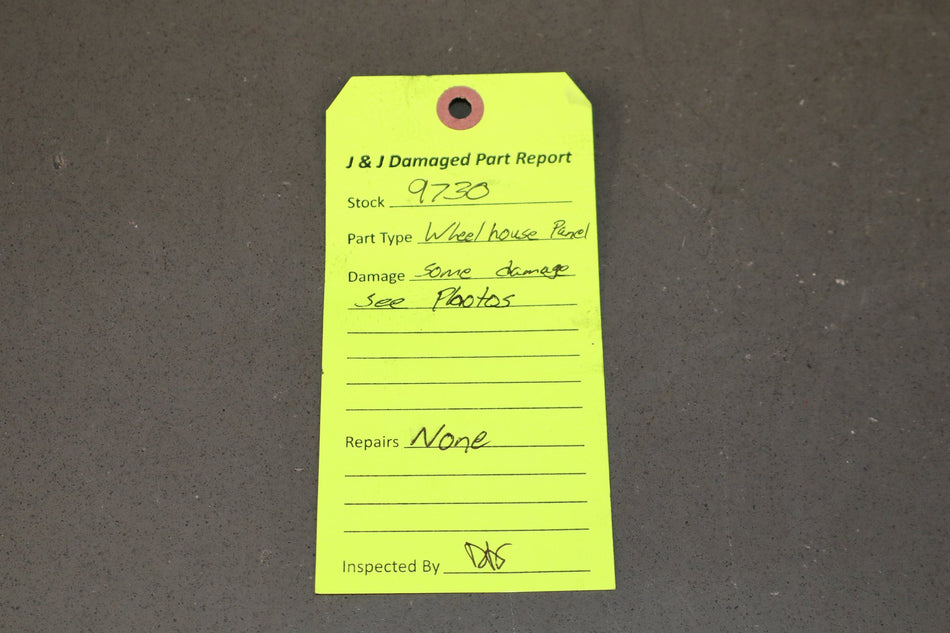 J & J Damaged Part Report
Stock 9730
Part Type Wheelhouse Panel
Damage some damage
see Photos
Repairs None
Inspected By